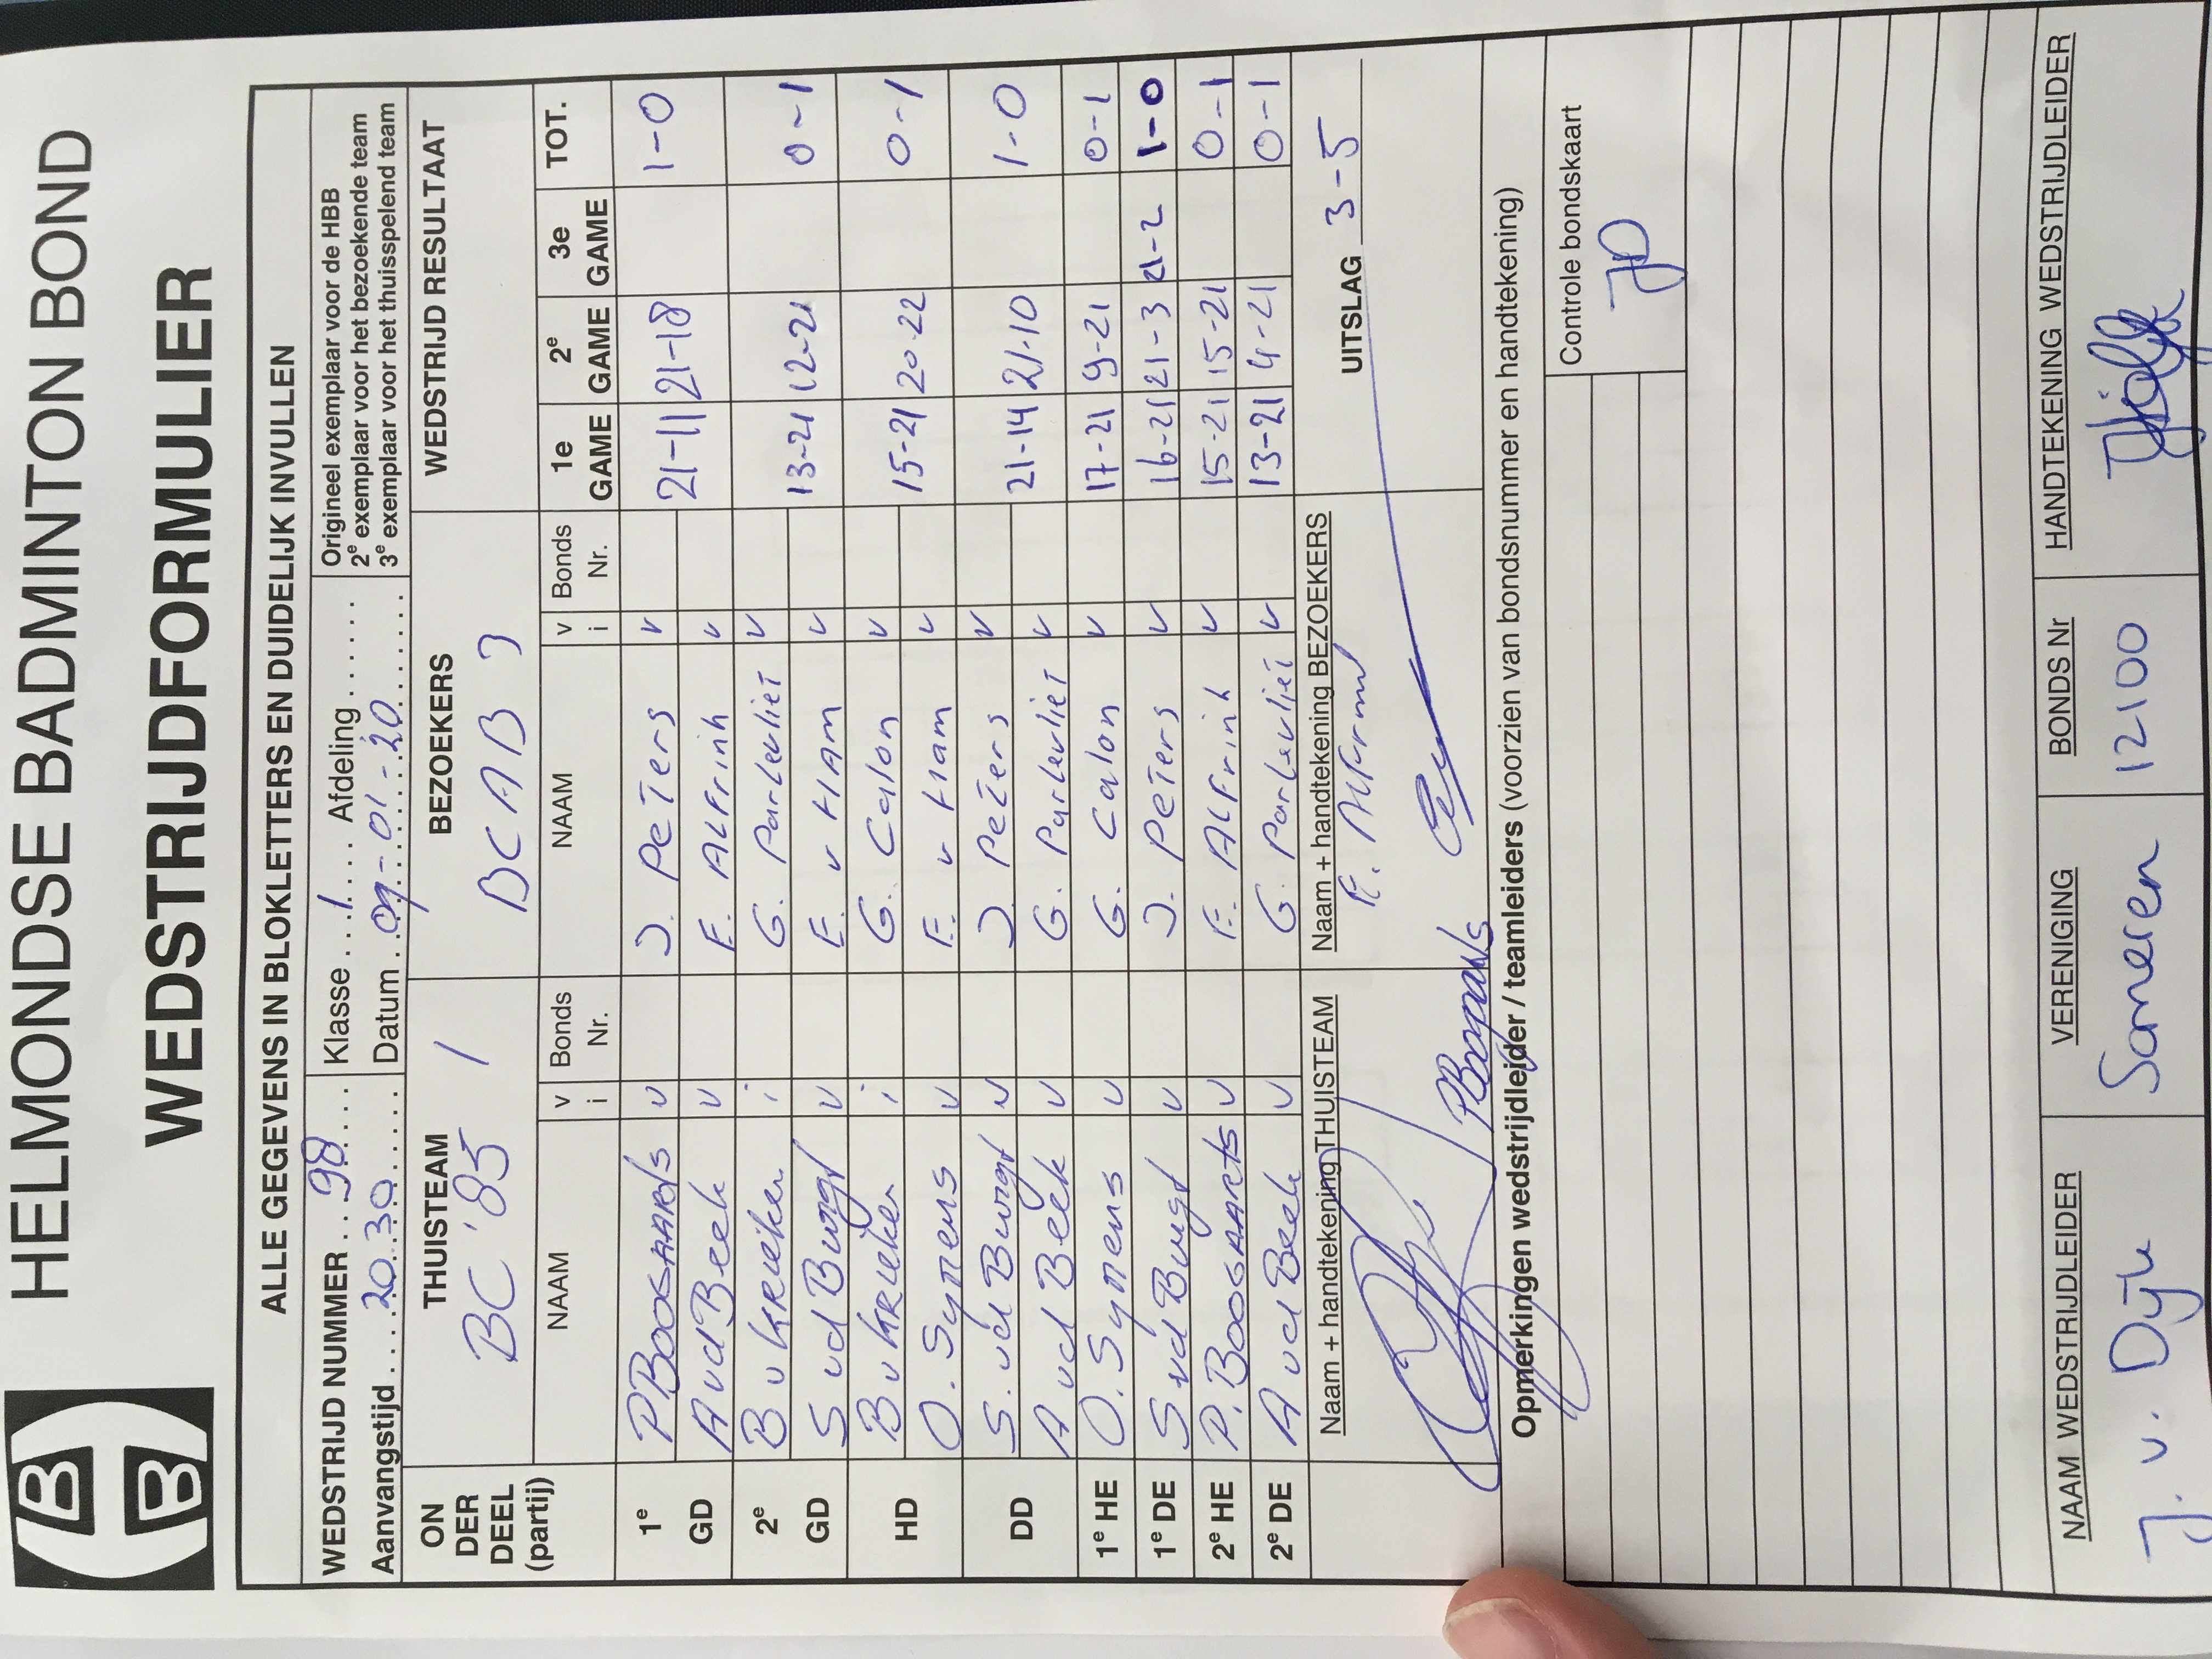 HELMONDSE BADMINTON BOND
WEDSTRIJDFORMULIER
ALLE GEGEVENS IN BLOKLETTERS EN DUIDELIJK INVULLEN
WEDSTRIJD NUMMER . . 98 . . . . Klasse . . . 1 . . . Afdeling . . . . . . Origineel exemplaar voor de HBB
2e exemplaar voor het bezoekende team
Aanvangstijd . . . . 20.30 . . . . . . Datum . . 09-01-20 . . . . . . 3e exemplaar voor het thuisspelend team
ON DER DEEL (partij) THUISTEAM BC '85 1 BEZOEKERS BCAB WEDSTRIJD RESULTAAT
NAAM v i Bonds Nr. NAAM v i Bonds Nr. 1e GAME 2e GAME 3e GAME TOT.
1e P BOOGAARTS v J. Peters v 21-11 21-18 1-0
GD A vd Beek v E. Alfrink v
2e B v KRieken i G. Parlevliet v 13-21 12-21 0-1
GD S vd Burgt v E. v Ham v
HD B v KRieken i G. Calon v 15-21 20-22 0-1
O. Symens v E. v Ham v
DD S. vd Burgt v J Peters v 21-14 21-10 1-0
A vd Beek v G. Parlevliet v
1e HE O. Symens v G. Calon v 17-21 9-21 0-1
1e DE S vd Burgt v J. Peters v 16-21 21-3 21-2 1-0
2e HE P. BOOGAARTS v E. Alfrink v 15-21 15-21 0-1
2e DE A vd Beek v G. Parlevliet v 13-21 4-21 0-1
Naam + handtekening THUISTEAM Naam + handtekening BEZOEKERS UITSLAG 3-5
Opmerkingen wedstrijdleider / teamleiders (voorzien van bondsnummer en handtekening)
Controle bondskaart
JD
NAAM WEDSTRIJDLEIDER VERENIGING BONDS Nr HANDTEKENING WEDSTRIJDLEIDER
J. v. Dijk Someren 12100